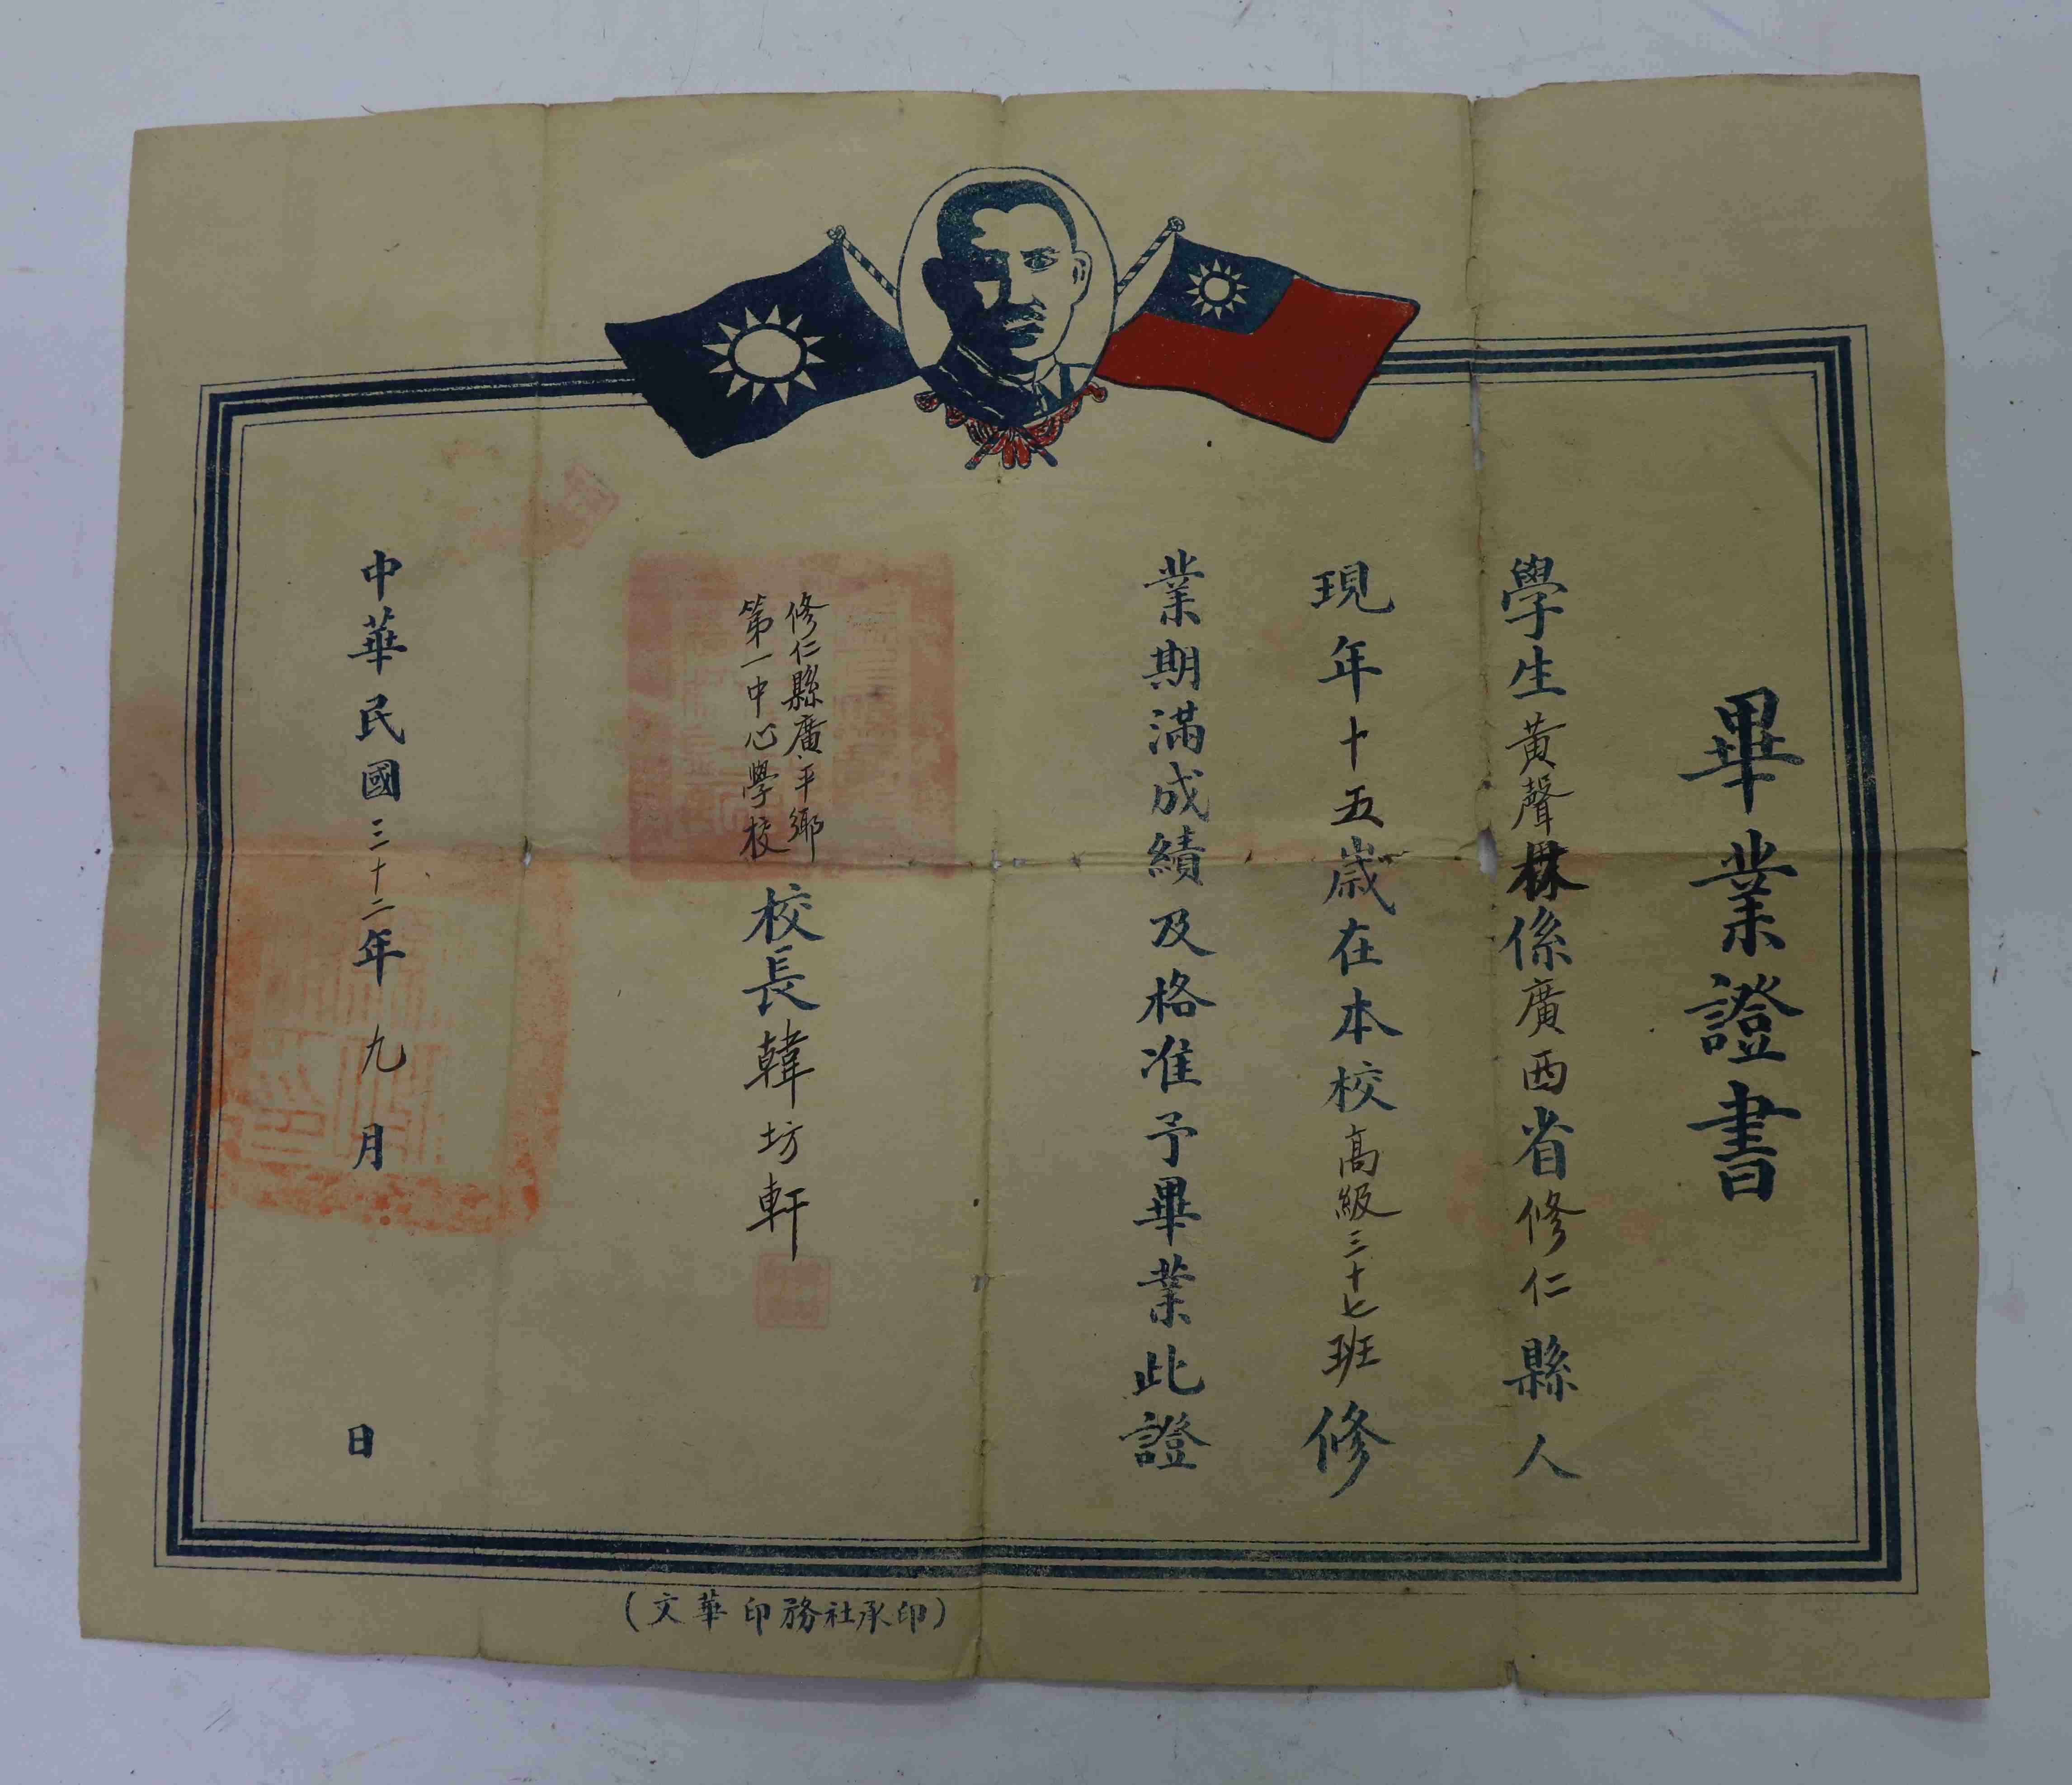 畢業證書
學生黃聲林係廣西省修仁縣人
現年十五歲在本校高級三十七班修
業期滿成績及格准予畢業此證
修仁縣廣平鄉
第一中心學校
校長韓坊軒
中華民國三十二年九月日
(文華印務社承印)